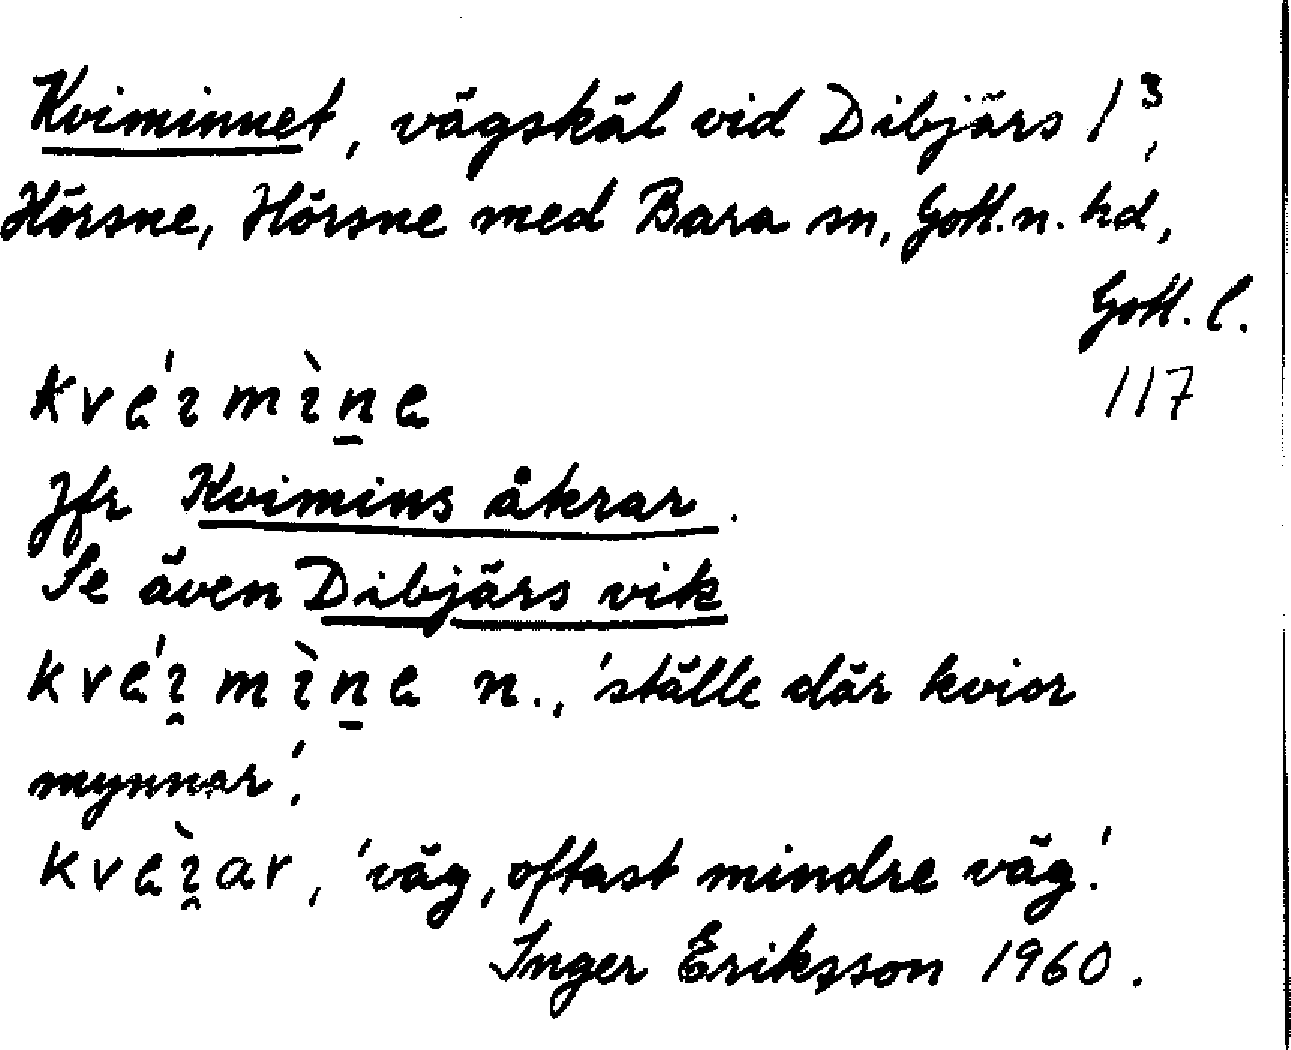 Kviminnet, vägskäl vid Dibjärs 1³,
Hörsne, Hörsne med Bara sn, Gotl.n. hd,
Gotl. l.
kvéımı̀n̠e
117
Jfr Kvimins åkrar.
Se även Dibjärs vik
kvéı̯mı̀n̠e n., 'ställe där kvior
mynnar'.
kvèı̯ar, 'väg, oftast mindre väg'.
Inger Eriksson 1960.